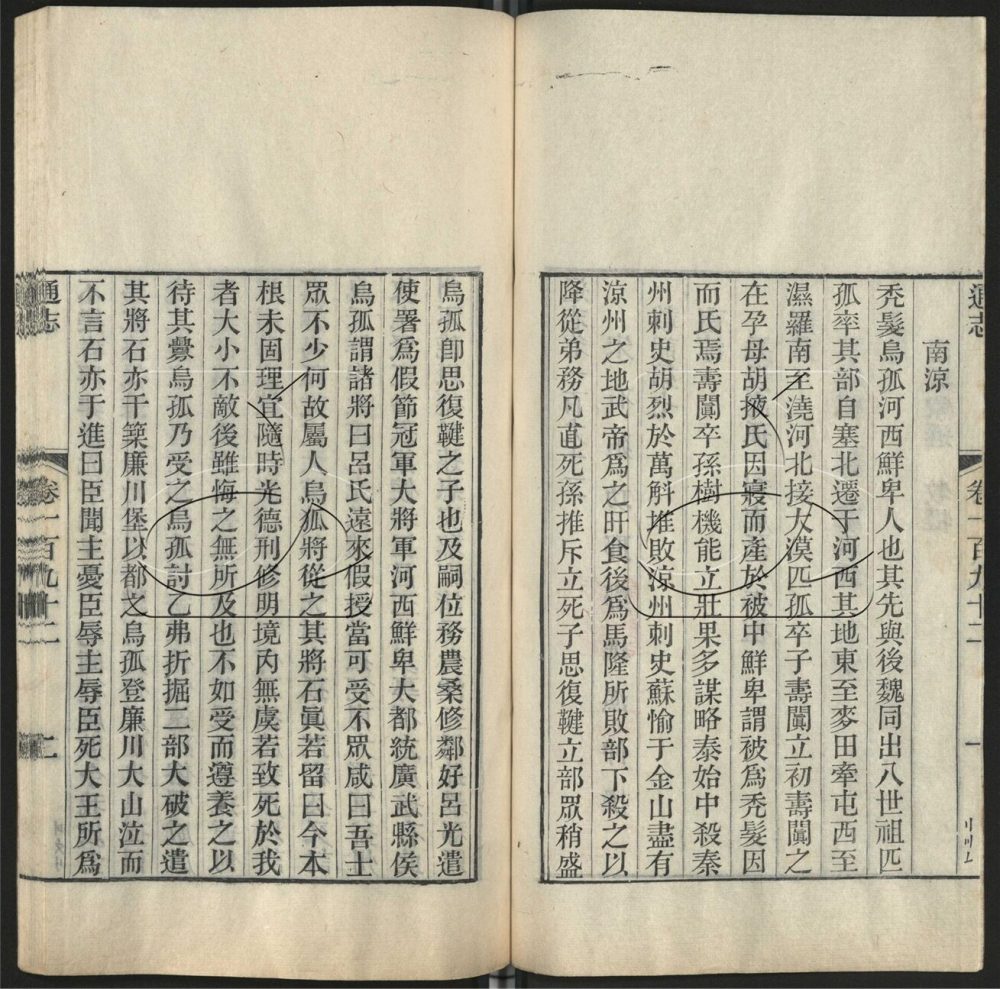 通志
卷一百九十二
一
南涼
禿髮烏孤河西鮮卑人也其先與後魏同出八世祖匹
孤率其部自塞北遷于河西其地東至麥田牽屯西至
濕羅南至澆河北接大漠匹孤卒子壽闐立初壽闐之
在孕母胡掖氏因寢而產於被中鮮卑謂被爲禿髮因
而氏焉壽闐卒孫樹機能立壯果多謀略泰始中殺秦
州刺史胡烈於萬斛堆敗涼州刺史蘇愉于金山盡有
涼州之地武帝爲之旰食後爲馬隆所敗部下殺之以
降從弟務凡直死孫推斥立死子思復鞬立部眾稍盛
烏孤卽思復鞬之子也及嗣位務農桑修鄰好呂光遣
使署爲假節冠軍大將軍河西鮮卑大都統廣武縣侯
烏孤謂諸將曰呂氏遠來假授當可受不眾咸曰吾士
眾不少何故屬人烏狐將從之其將石眞若留曰今本
根未固理宜隨時光德刑修明境內無虞若致死於我
者大小不敵後雖悔之無所及也不如受而遵養之以
待其釁烏孤乃受之烏孤討乙弗折掘二部大破之遣
其將石亦干築廉川堡以都之烏孤登廉川大山泣而
不言石亦于進曰臣聞主憂臣辱主辱臣死大王所爲
通志
卷一百九十二
二